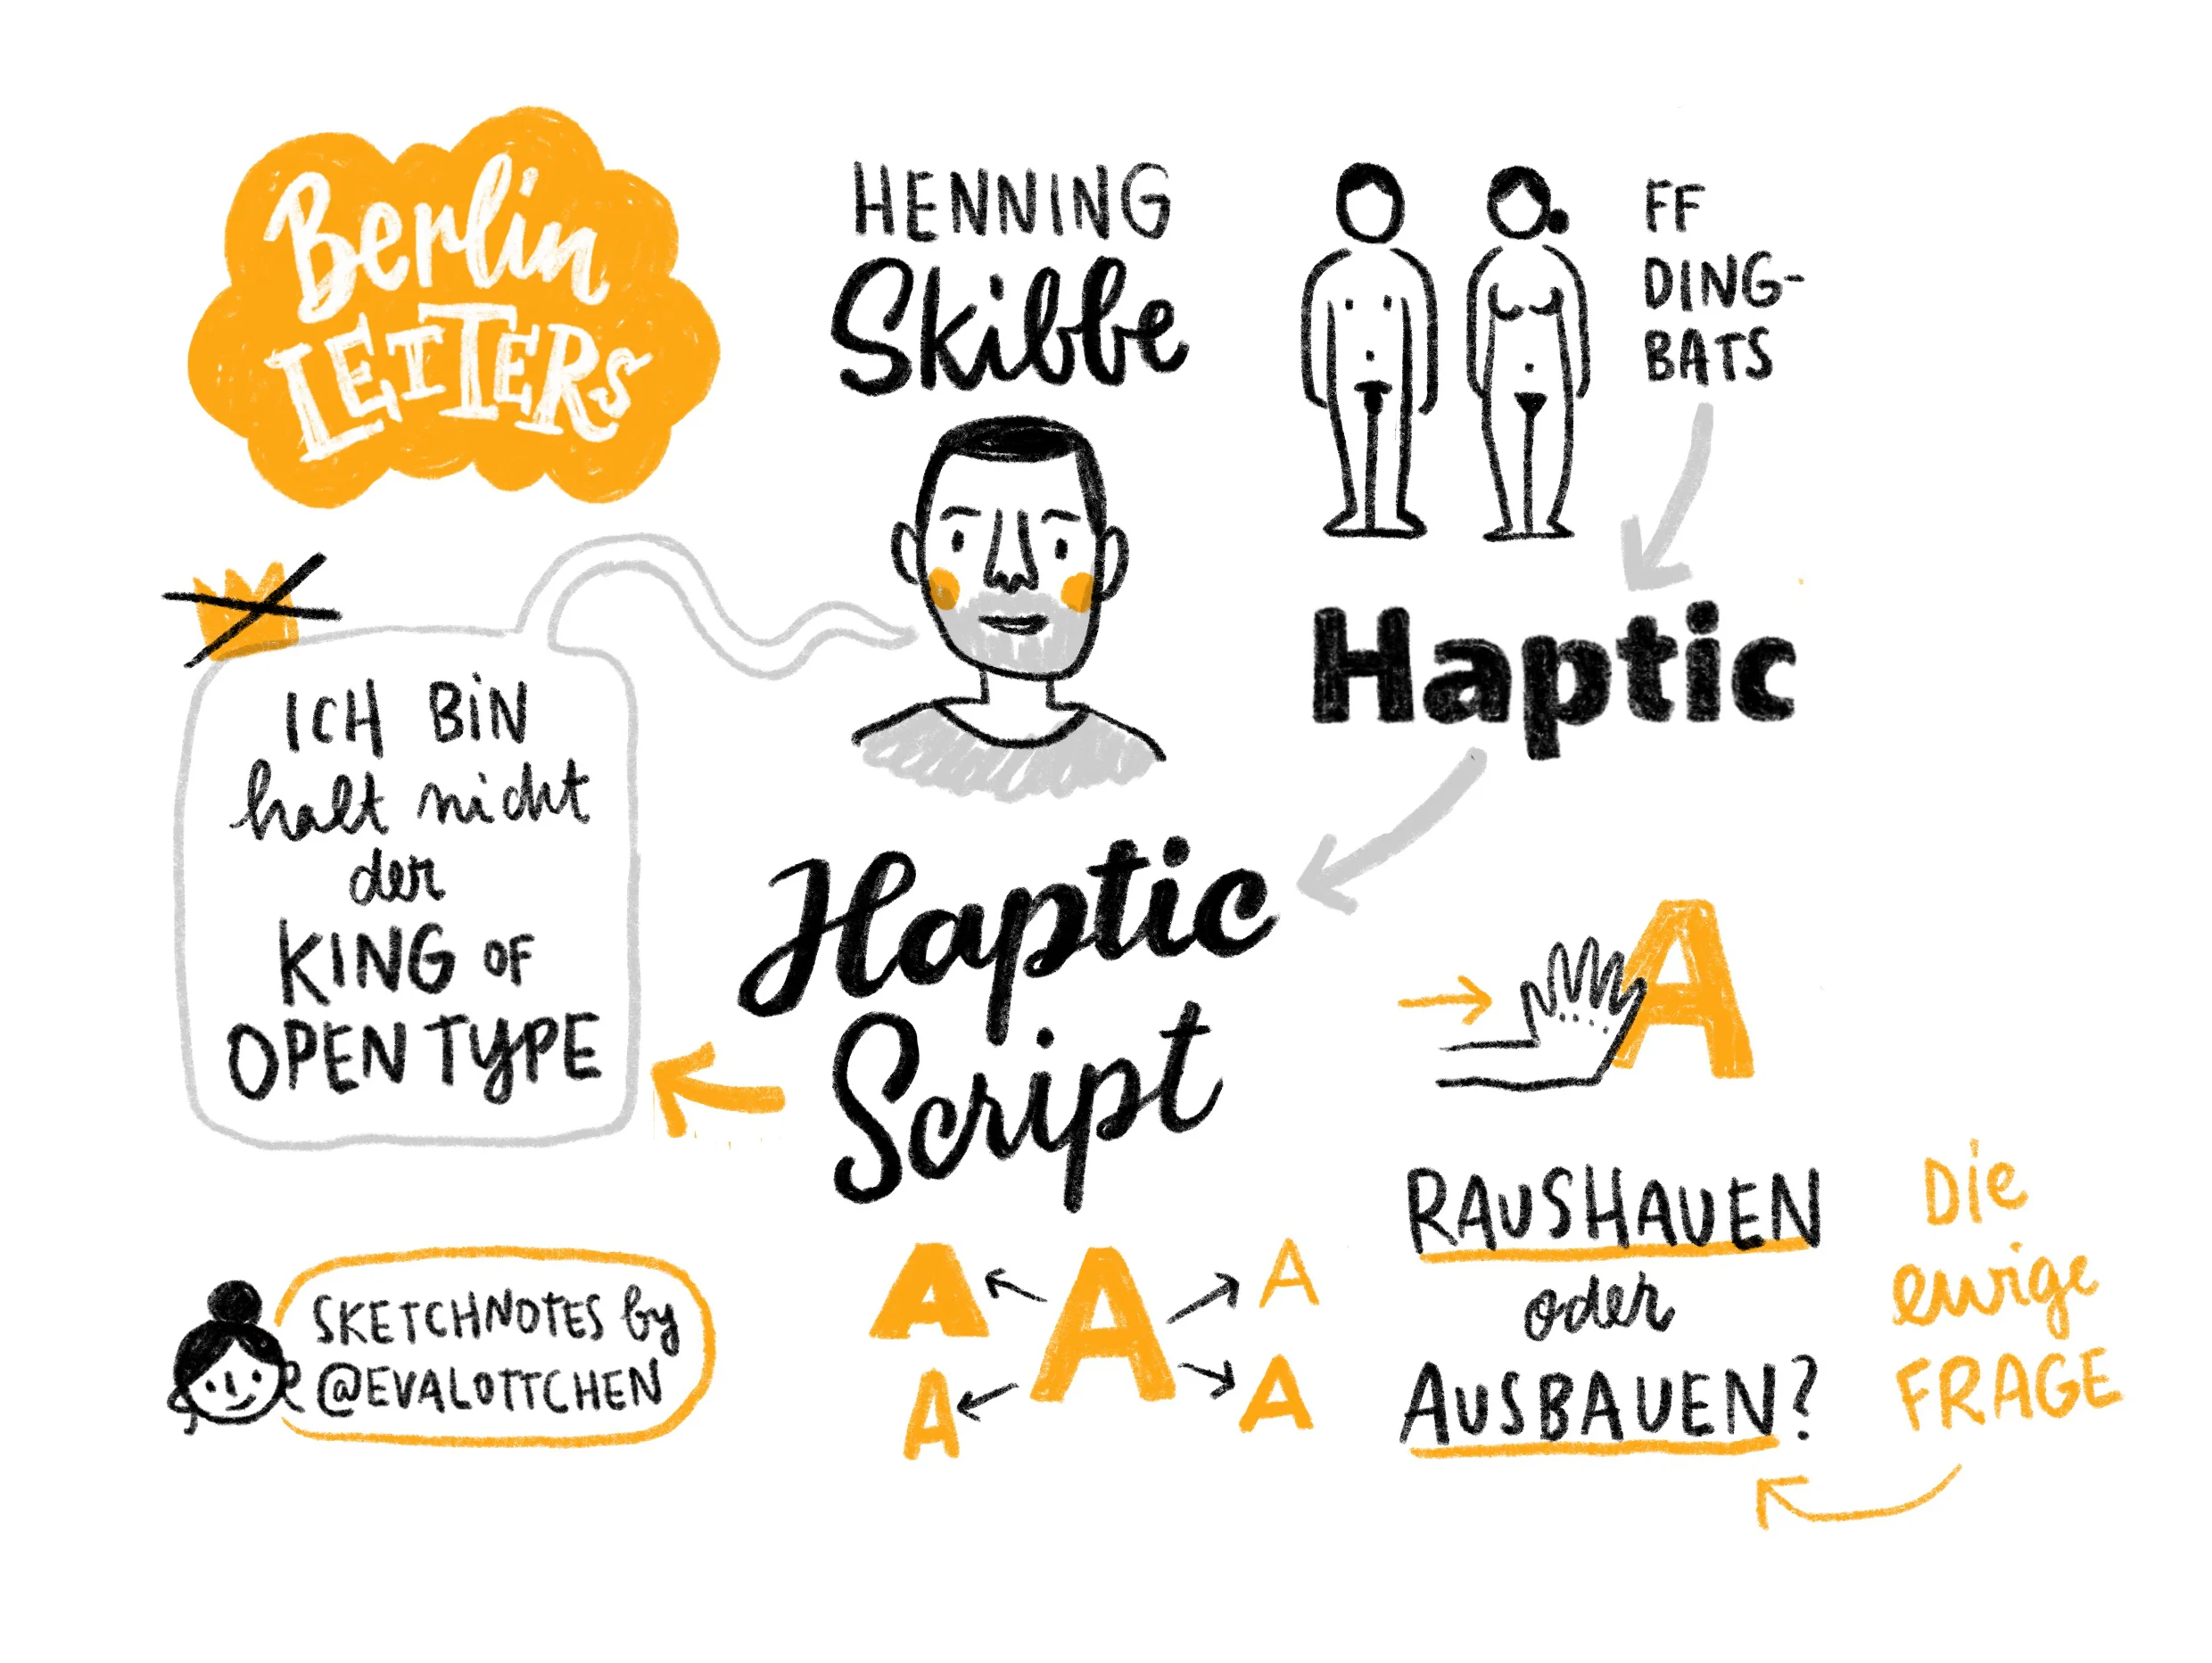 Berlin
LETTERS
HENNING
Skibbe
FF
DING-
BATS
Haptic
ICH BIN
halt nicht
der
KING OF
OPEN TYPE
Haptic
Script
A
RAUSHAUEN
oder
AUSBAUEN?
Die
ewige
FRAGE
A A A
A A
SKETCHNOTES by
@EVALOTTCHEN